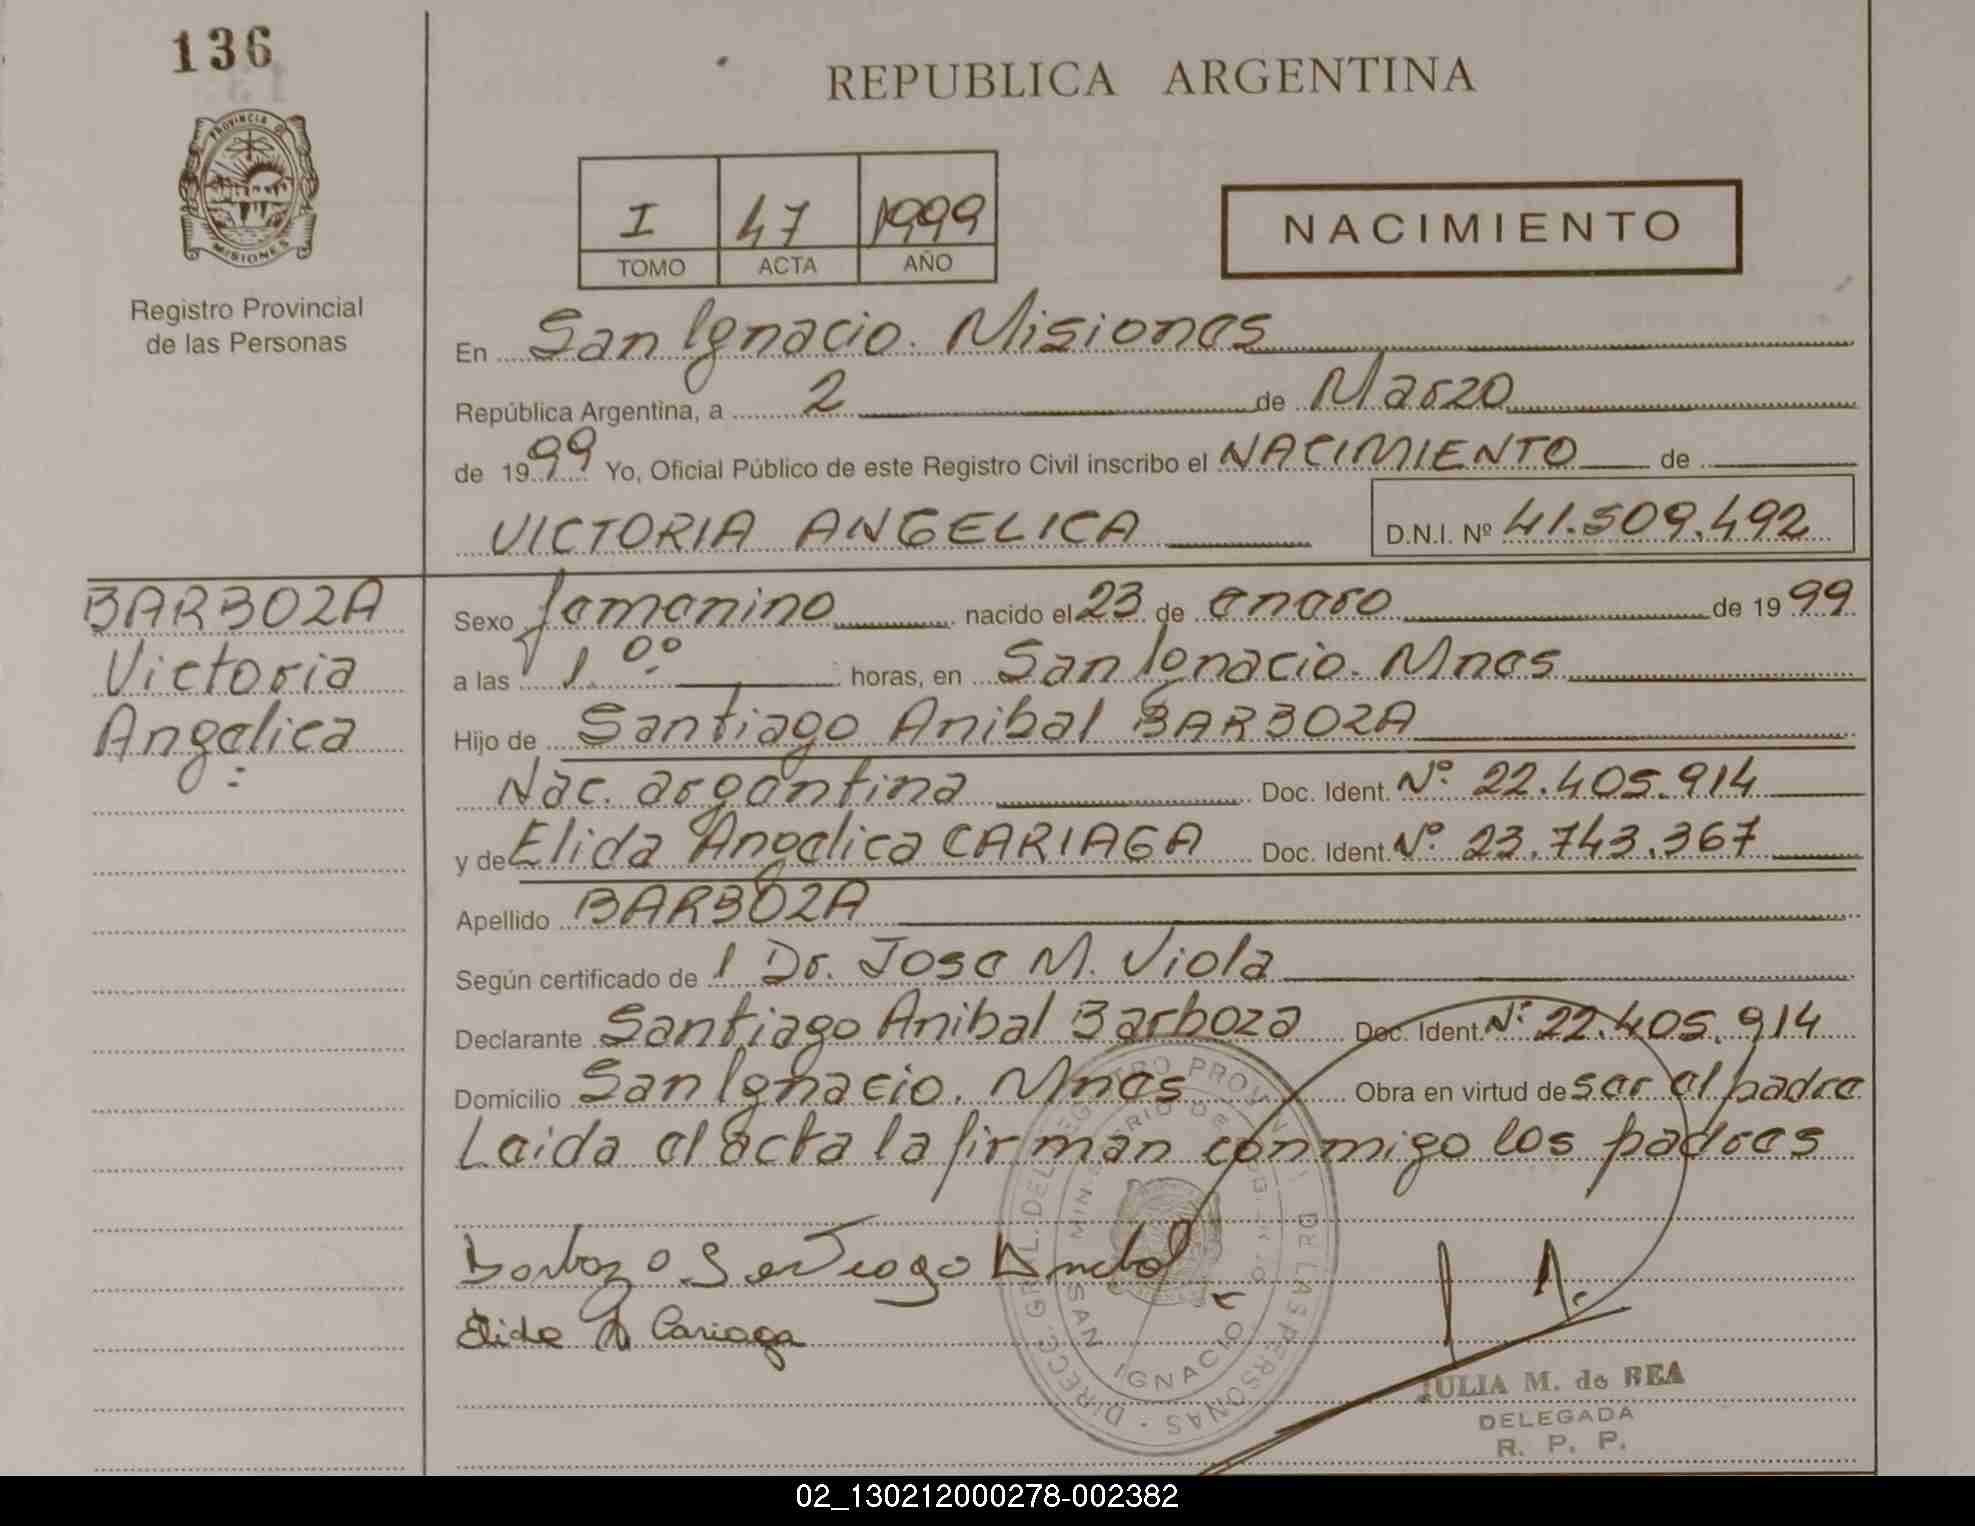 136
PROVINCIA DE
MISIONES
Registro Provincial
de las Personas
REPUBLICA ARGENTINA
I 47 1999
TOMO ACTA AÑO
NACIMIENTO
En San Ignacio. Misiones
República Argentina, a 2 de Marzo
de 1999 Yo, Oficial Público de este Registro Civil inscribo el NACIMIENTO de
VICTORIA ANGELICA D.N.I. Nº 41.509.492
BARBOZA
Victoria
Angelica
Sexo femenino nacido el 23 de enero de 1999
a las 1 00 horas, en San Ignacio. Mnes
Hijo de Santiago Anibal BARBOZA
Nac. argentina Doc. Ident. Nº 22.405.914
y de Elida Angelica CARIAGA Doc. Ident. Nº 23.743.367
Apellido BARBOZA
Según certificado de 1 Dr. Jose M. Viola
Declarante Santiago Anibal Barboza Doc. Ident. Nº 22.405.914
Domicilio San Ignacio. Mnes Obra en virtud de ser el padre
Leida el acta la firman conmigo los padres
Barboza Santiago Anibal
Elida A Cariaga
DIRECC. GRAL. DEL REGISTRO PROVINCIAL DE LAS PERSONAS
MINISTERIO DE GOBIERNO
SAN IGNACIO
JULIA M. de REA
DELEGADA
R. P. P.
02_130212000278-002382